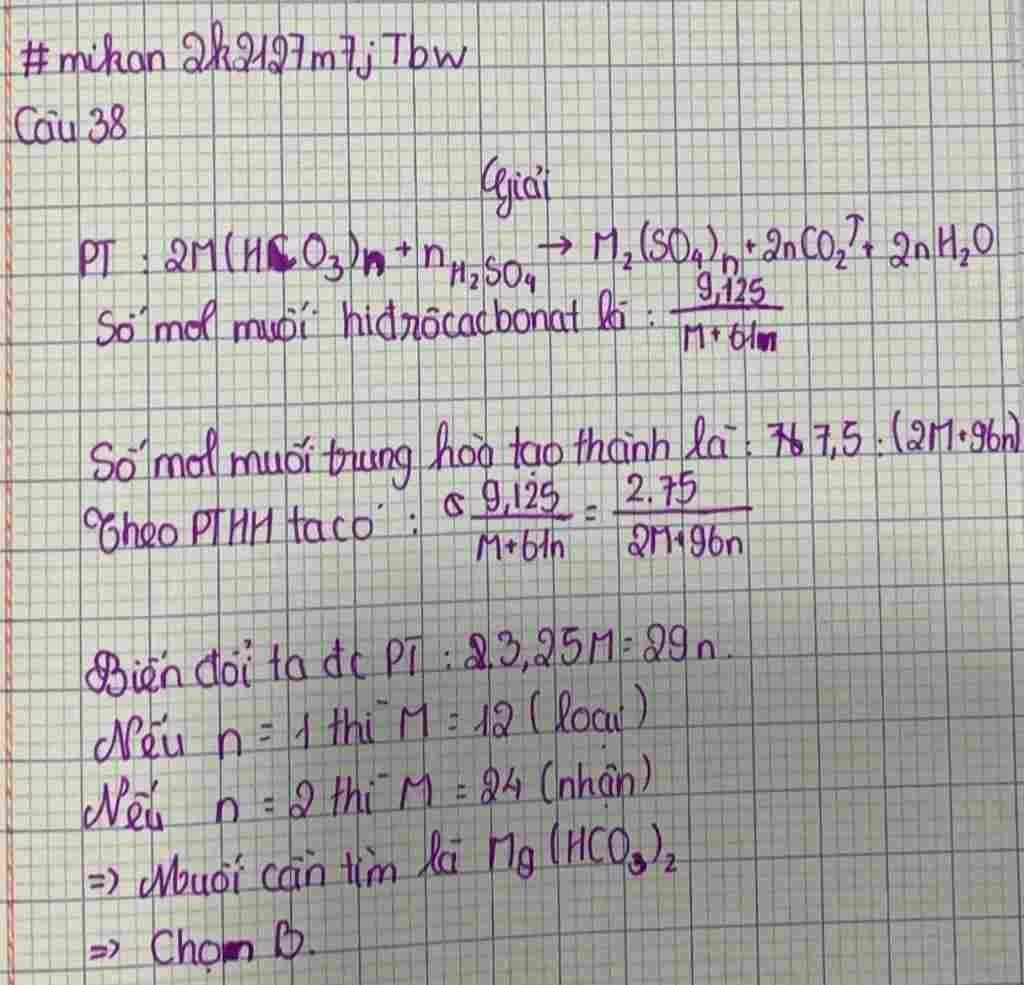 #mikan 2k2127m7jTbw
Câu 38
Giải
PT : 2M(HCO₃)n + nH₂SO₄ → M₂(SO₄)n + 2nCO₂↑ + 2nH₂O
Số mol muối hiđrôcacbonat là : 9,125 / (M+61n)
Số mol muối trung hoà tạo thành là : 7,5 : (2M+96n)
Theo PTHH ta có : 9,125 / (M+61n) = 2.75 / (2M+96n)
Biến đổi ta đc PT : 23,25M = 29n.
Nếu n = 1 thì M = 12 (loại)
Nếu n = 2 thì M = 24 (nhận)
=> Muối cần tìm là Mg(HCO₃)₂
=> Chọn B.